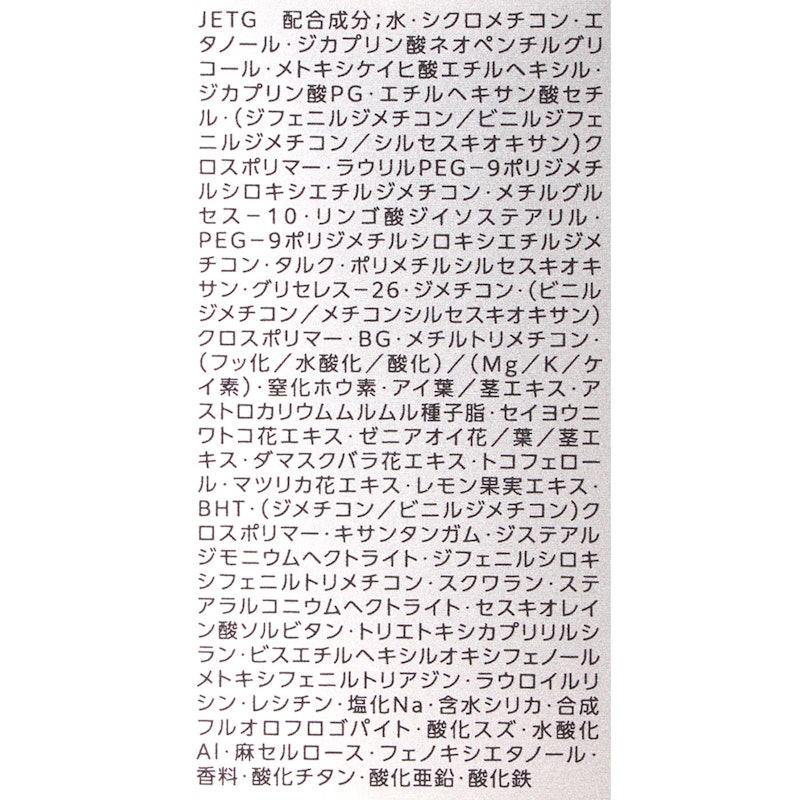 JETG　配合成分;水・シクロメチコン・エ
タノール・ジカプリン酸ネオペンチルグリ
コール・メトキシケイヒ酸エチルヘキシル・
ジカプリン酸PG・エチルヘキサン酸セチ
ル・(ジフェニルジメチコン／ビニルジフェ
ニルジメチコン／シルセスキオキサン)ク
ロスポリマー・ラウリルPEG−9ポリジメチ
ルシロキシエチルジメチコン・メチルグル
セス−10・リンゴ酸ジイソステアリル・
PEG−9ポリジメチルシロキシエチルジメ
チコン・タルク・ポリメチルシルセスキオキ
サン・グリセレス−26・ジメチコン・(ビニル
ジメチコン／メチコンシルセスキオキサン)
クロスポリマー・BG・メチルトリメチコン・
(フッ化／水酸化／酸化)／(Mg／K／ケ
イ素)・窒化ホウ素・アイ葉／茎エキス・ア
ストロカリウムムルムル種子脂・セイヨウニ
ワトコ花エキス・ゼニアオイ花／葉／茎エ
キス・ダマスクバラ花エキス・トコフェロー
ル・マツリカ花エキス・レモン果実エキス・
BHT・(ジメチコン／ビニルジメチコン)ク
ロスポリマー・キサンタンガム・ジステアル
ジモニウムヘクトライト・ジフェニルシロキ
シフェニルトリメチコン・スクワラン・ステ
アラルコニウムヘクトライト・セスキオレイ
ン酸ソルビタン・トリエトキシカプリリルシ
ラン・ビスエチルヘキシルオキシフェノール
メトキシフェニルトリアジン・ラウロイルリ
シン・レシチン・塩化Na・含水シリカ・合成
フルオロフロゴパイト・酸化スズ・水酸化
Al・麻セルロース・フェノキシエタノール・
香料・酸化チタン・酸化亜鉛・酸化鉄